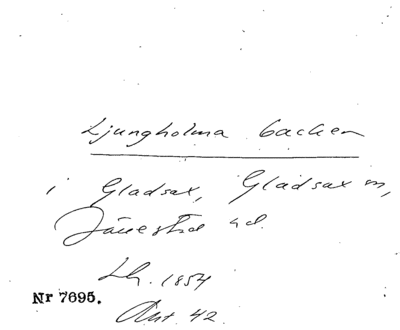 Ljungholma backen
i Gladsax, Gladsax sn,
Järrestad hd.
Lh. 1854
Nr 7695.
Ant. 42.